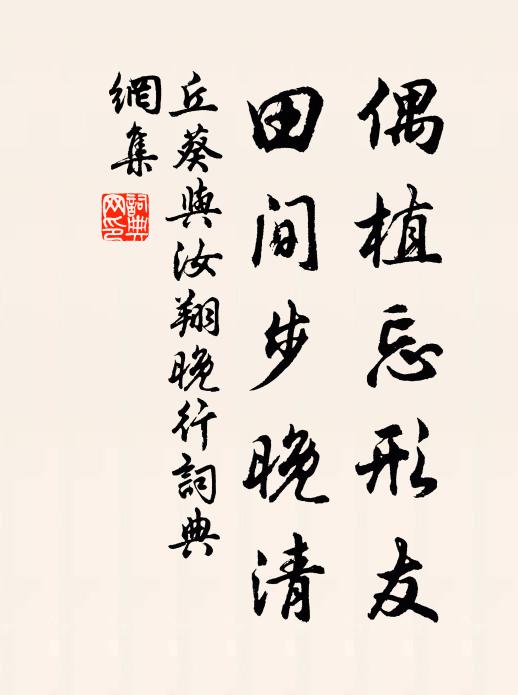 偶植忘形友
田間步晚清
丘葵與汝翔晚行詞典
網集
詞典
网印